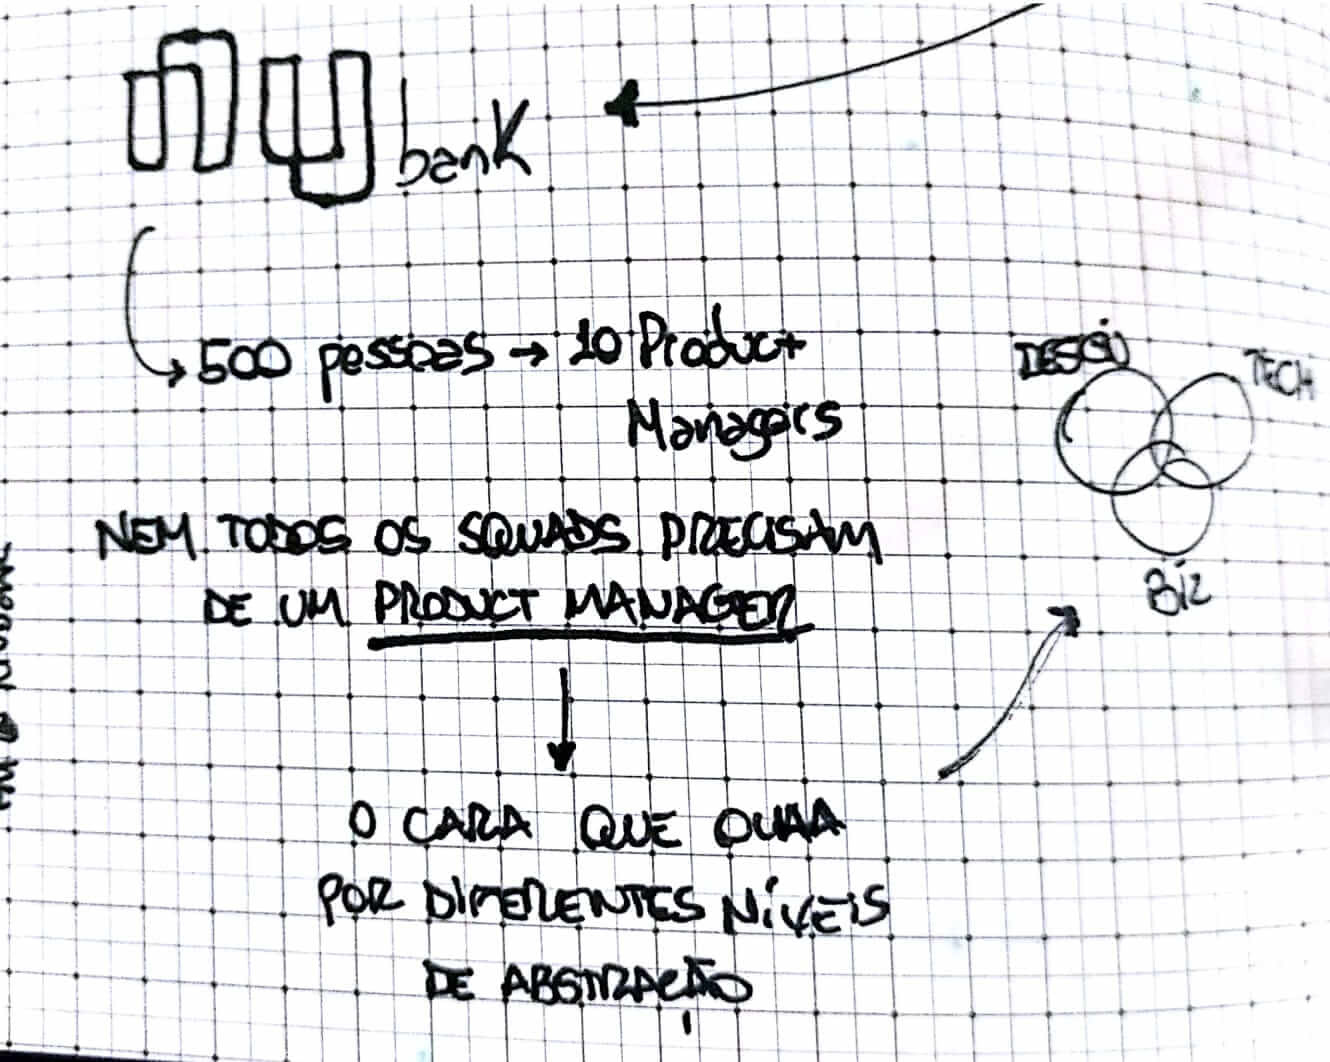 nu bank
500 pessoas → 10 Product
Managers
DESIGN
TECH
BIZ
NEM TODOS OS SQUADS PRECISAM
DE UM PRODUCT MANAGER
O CARA QUE OLHA
POR DIFERENTES NÍVEIS
DE ABSTRAÇÃO